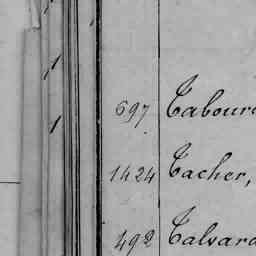 697 Tabour
1424 Tacher,
492 Talvard